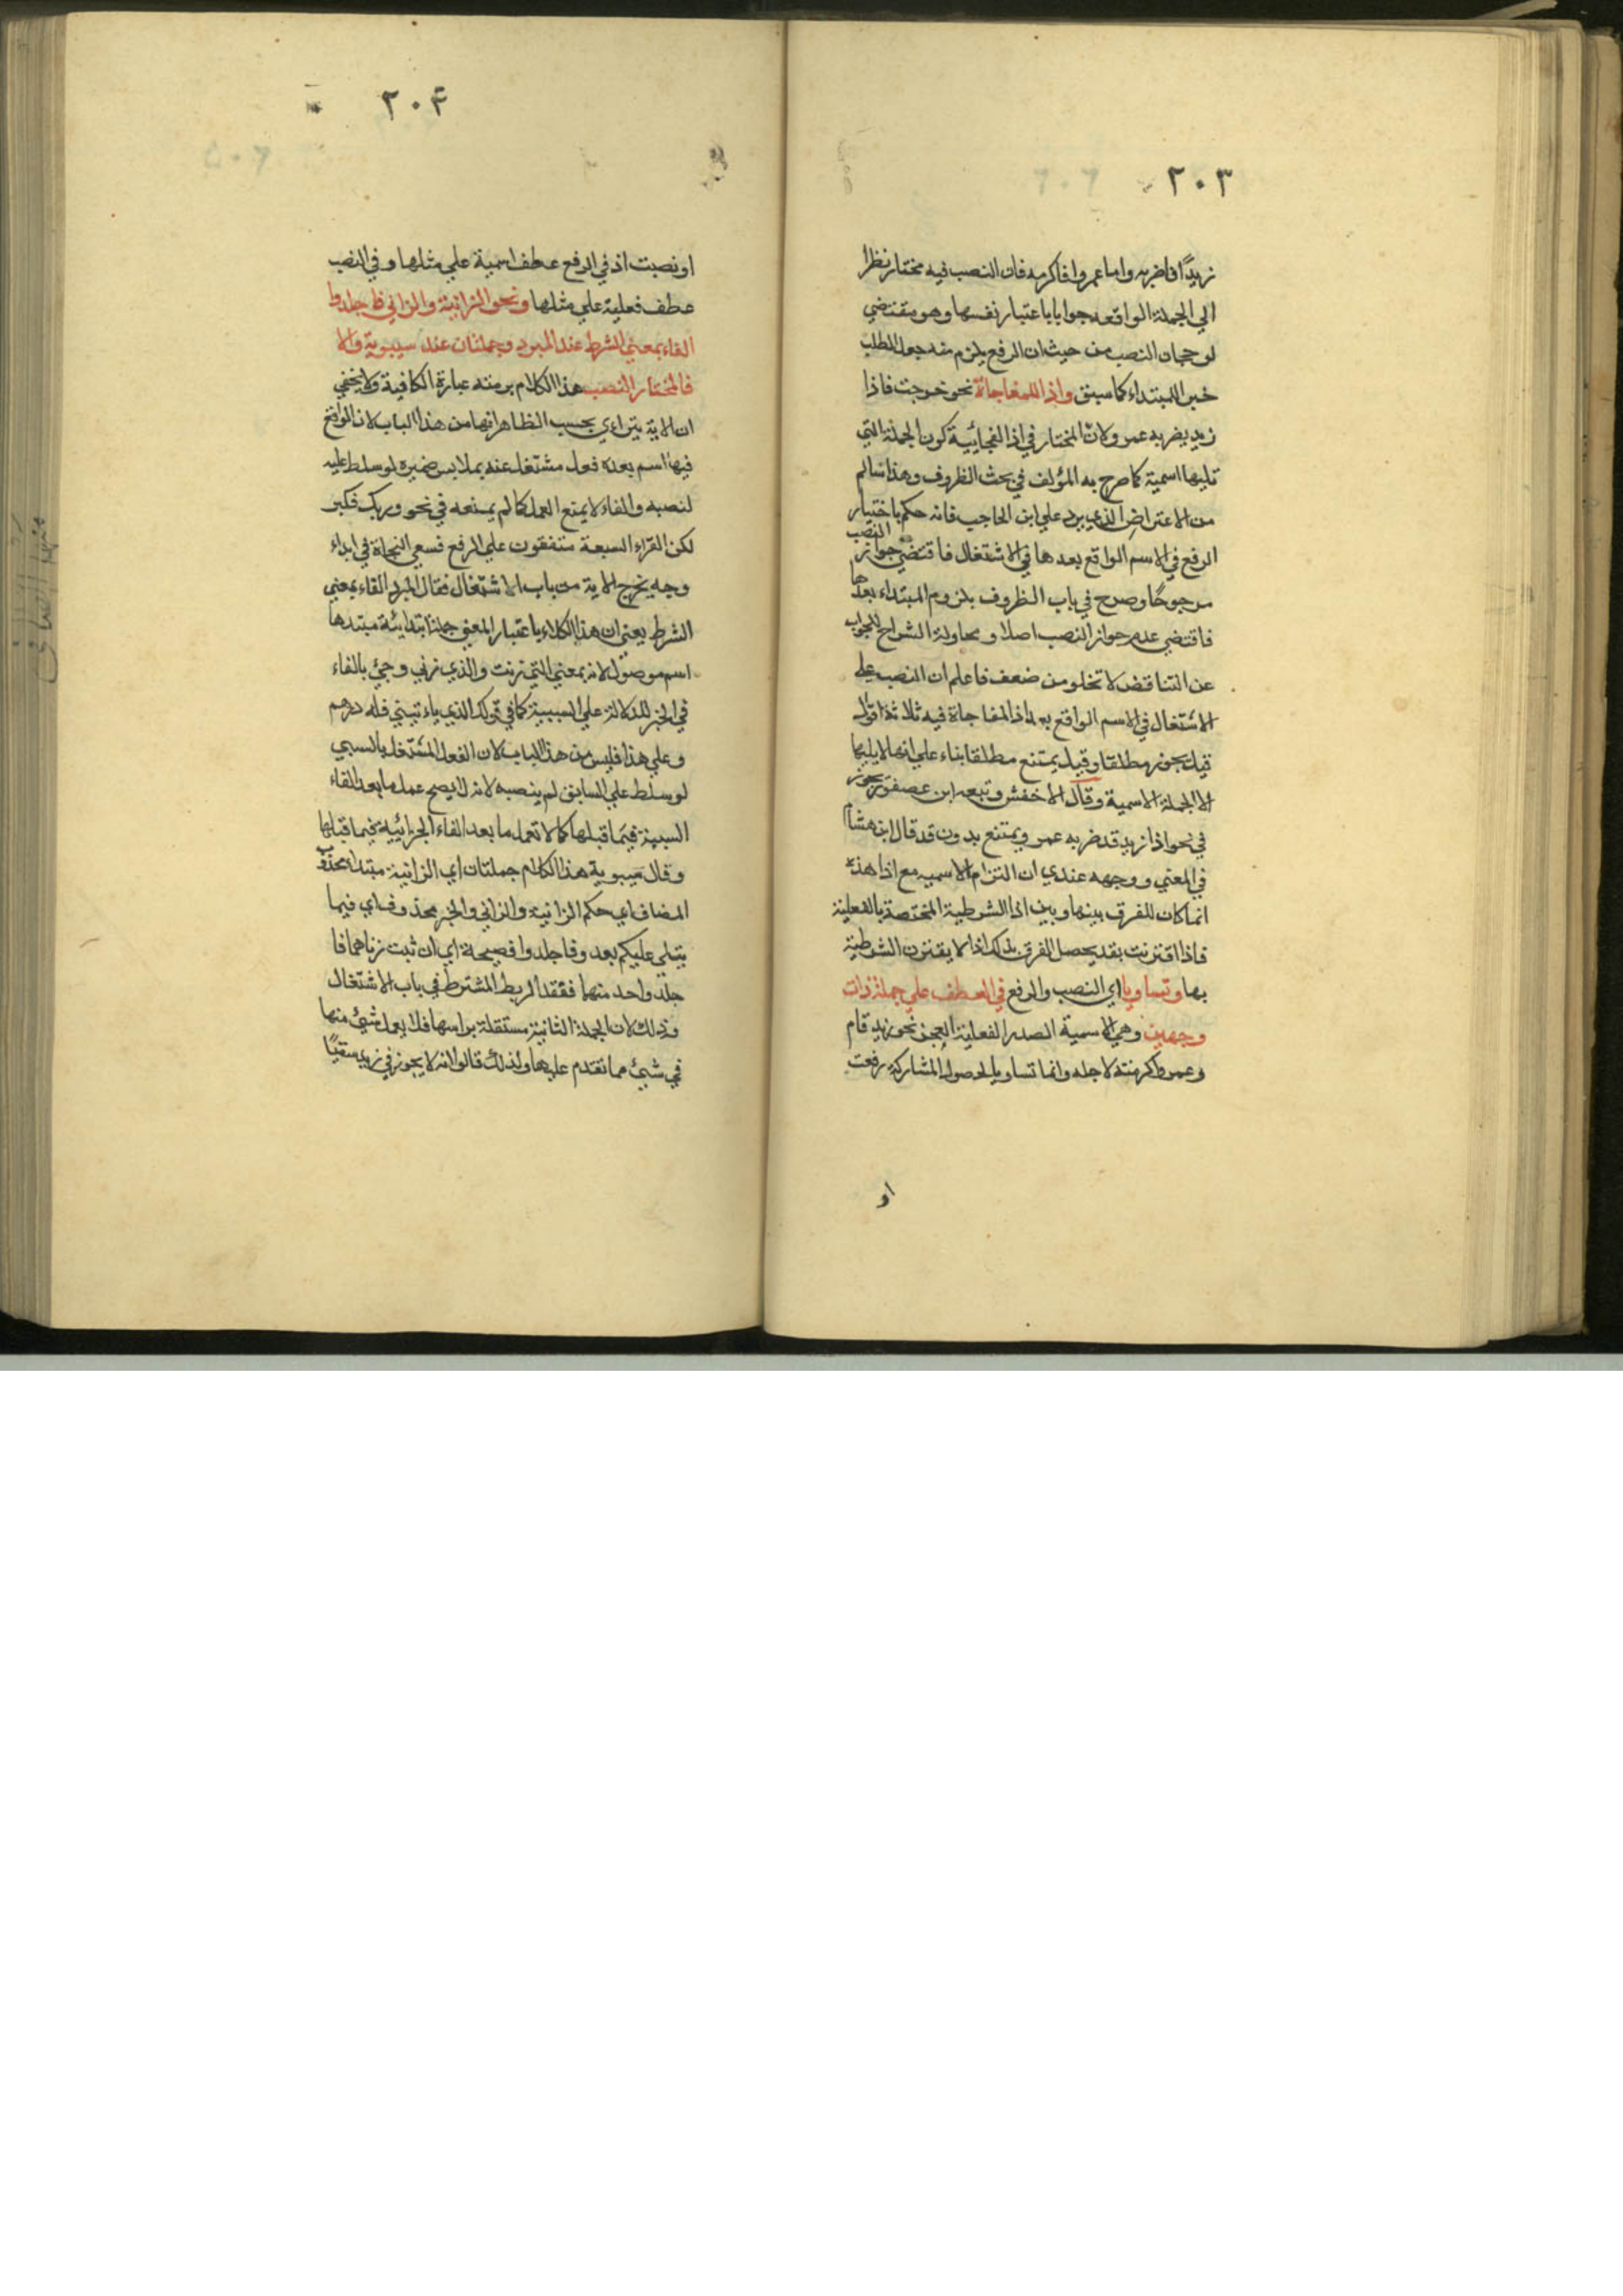 ٢٠٣
زيدًا فاضربه واما عمروا فاكرمه فان النصب فيه مختار نظرا
الي الجملة الواقعه جوابا باعتبار نفسها وهو مقتضي
لرجحان النصب من حيث ان الرفع يلزم منه جعل الطلب
خبر المبتداء كما سبق واذا للمفاجاة نحو خرجت فاذا
زيد يضربه عمرو لان المختار في اذا الفجائية كون الجملة التي
تليها اسمية كما صرح به المؤلف في بحث الظروف وهذا سالم
من الاعتراض الذي يرد علي ابن الحاجب فانه حكم باختيار
الرفع في الاسم الواقع بعدها في الاشتغال فاقتضي جواز النصب
مرجوحًا وصرح في باب الظروف بلزوم المبتداء بعدها
فاقتضي عدم جواز النصب اصلا ومحاولة الشراح الجواب
عن التناقض لا تخلو من ضعف فاعلم ان النصب علي
الاشتغال في الاسم الواقع بعد اذا المفاجاة فيه ثلاثة اقوال
قيل يجوز مطلقا وقيل يمتنع مطلقا بناء علي انها لا يليها
الا الجملة الاسمية وقال الاخفش وتبعه ابن عصفور يجوز
في نحو اذا زيد قد ضربه عمرو ويمتنع بدون قد قال ابن هشام
في المغني ووجهه عندي ان التزام الاسميه مع اذا هذه
انما كان للفرق بينها وبين اذا الشرطية المختصة بالفعلية
فاذا اقترنت بقد يحصل الفرق بذلك اذ لا يقترن الشرطية
بها وتساويا اي النصب والرفع في العطف علي جملة ذات
وجهين وهي الاسمية الصدر الفعلية العجز نحو زيد قام
وعمرو اكرمته لاجله وانما تساويا لحصول المشاركة رفعت
او
٢٠٤
او نصبت اذ في الرفع عطف اسمية علي مثلها وفي النصب
عطف فعلية علي مثلها ونحو الزانية والزاني فاجلدوا
الفاء بمعني الشرط عند المبرد وجملتان عند سيبوية والا
فالمختار النصب هذا الكلام برمته عبارة الكافية ولا يخفي
ان الاية يتراءي بحسب الظاهر انها من هذا الباب لان الواقع
فيها اسم بعده فعل مشتغل عنه بملابس ضميره لو سلط عليه
لنصبه والفاء لا يمنع العمل كما لم يمنعه في نحو وربك فكبر
لكن القراء السبعة متفقون علي الرفع فسعي النحاة في ابداء
وجه يخرج الاية من باب الاشتغال فقال المبرد الفاء بمعني
الشرط يعني ان هذا الكلام باعتبار المعني جملة ابتدائية مبتدها
اسم موصول لانه بمعني التي زنت والذي زني وجئ بالفاء
في الخبر للدلالة علي السببية كما في قولك الذي ياءتيني فله درهم
وعلي هذا فليس من هذا الباب لان الفعل المشتغل بالسببي
لو سلط علي السابق لم ينصبه لانه لا يصح عمل ما بعد الفاء
السببية فيما قبلها كما لا تعمل ما بعد الفاء الجزائية فيما قبلها
وقال سيبوية هذا الكلام جملتان اي الزانية مبتداء محذوف
المضاف اي حكم الزانية والزاني والخبر محذوف اي فيما
يتلي عليكم بعد وفاجلدوا فصيحة اي ان ثبت زناهما فا
جلد واحد منهما ففقد الربط المشترط في باب الاشتغال
وذلك لان الجملة الثانية مستقلة براسها فلا يعمل شئ منها
في شئ مما تقدم عليها ولذلك قالوا انه لا يجوز في زيد سقيًا